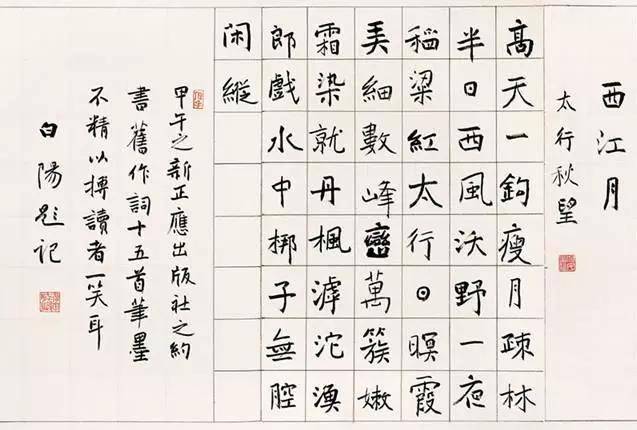 西江月
太行秋望
高天一鉤瘦月疎林
半日西風沃野一夜
稻粱紅太行日暝霞
美細數峰巒萬簇嫩
霜染就丹楓滹沱漁
郎戲水中梆子無腔
闲縱
甲午之新正應出版社之約
書舊作詞十五首筆墨
不精以搏讀者一笑耳
白陽題記